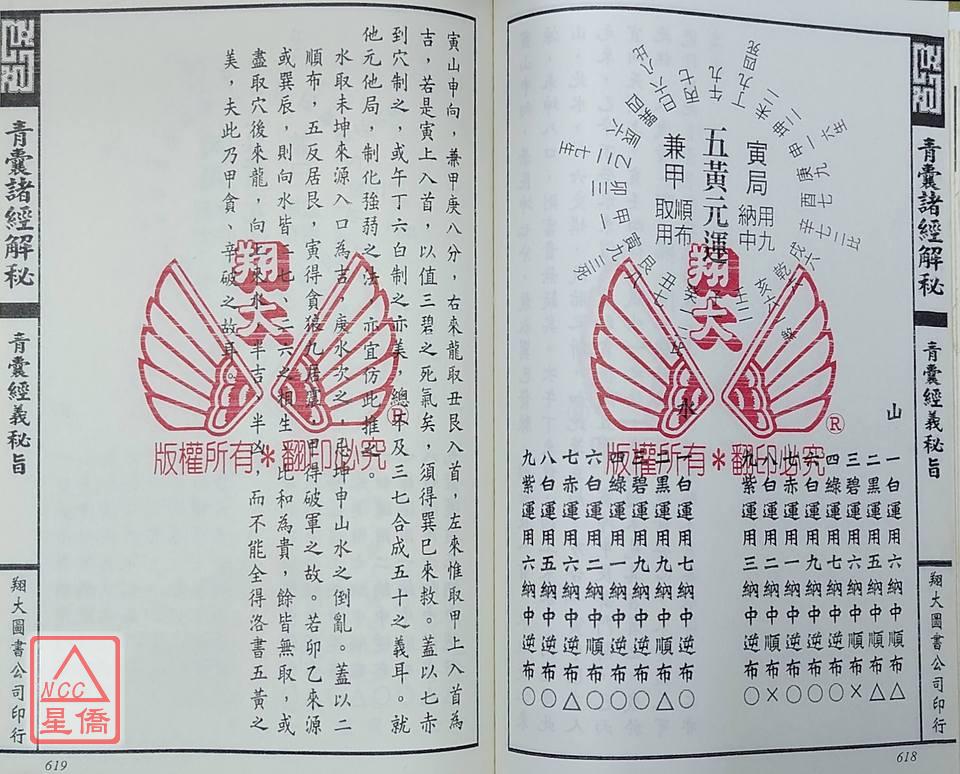 青囊諸經解秘
青囊經義秘旨
翔大圖書公司印行
618
五黃元運
寅局
用九
納中
兼甲
順布
取用
山
一白運用六納中順布△
二黑運用五納中逆布△
三碧運用八納中順布×
四綠運用七納中逆布○
六白運用九納中逆布○
七赤運用一納中逆布○
八白運用二納中順布×
九紫運用三納中逆布○
水
一白運用七納中逆布○
二黑運用九納中順布△
三碧運用九納中逆布○
四綠運用一納中逆布○
六白運用二納中順布○
七赤運用六納中逆布△
八白運用五納中逆布○
九紫運用六納中逆布○
寅山申向，兼甲庚八分，右來龍取丑艮入首，左來惟取甲上入首為
吉，若是寅上入首，以值三碧之死氣矣，須得巽巳來救。蓋以七赤
到穴制之，或午丁六白制之亦美，總不及三七合成五十之義耳。就
他元他局，制化強弱之法，亦宜仿此推之。
水取未坤來源入口為吉，庚水次之，忌坤申山水之倒亂。蓋以二
順布，五反居艮，寅得貪狼九居震，甲得破軍之故。若卯乙來源
或巽辰，則向水皆二七、二六之相生比和為貴，餘皆無取，或
盡取穴後來龍，向上來水，半吉、半凶，而不能全得洛書五黃之
美，夫此乃甲貪、辛破之故耳。
青囊諸經解秘
青囊經義秘旨
翔大圖書公司印行
619
翔大
版權所有＊翻印必究
®
翔大
版權所有＊翻印必究
®
NCC
星僑